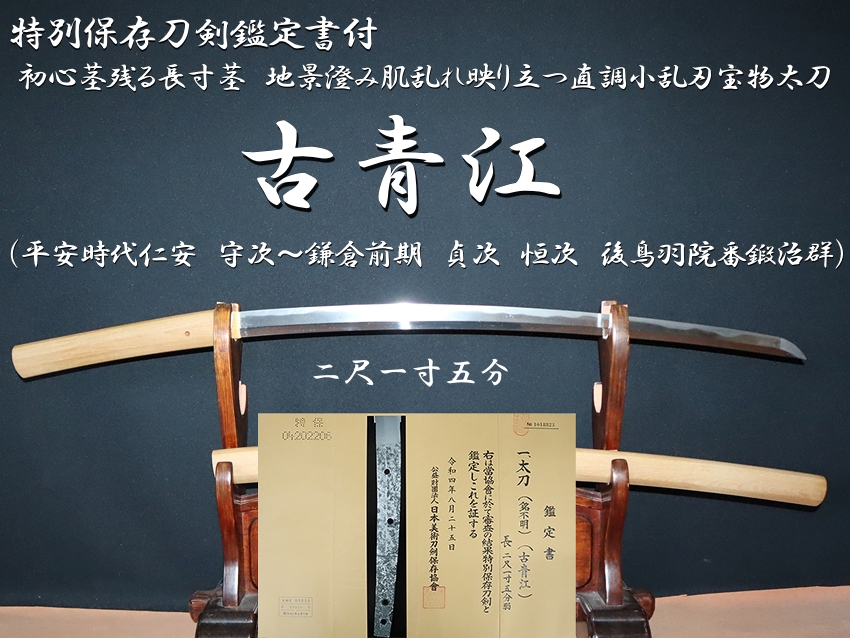 特別保存刀剣鑑定書付
初心茎残る長寸茎　地景澄み肌乱れ映り立つ直調小乱刃宝物太刀
古青江
(平安時代仁安　守次～鎌倉前期　貞次　恒次　後鳥羽院番鍛治群)
二尺一寸五分
特保
04202206
鑑定書
一、太刀(銘不明)(古青江)
長二尺一寸五分弱
右は當協會に於て審査の結果特別保存刀剣と
鑑定しこれを証する
令和四年八月二十五日
公益財團法人日本美術刀剣保存協會